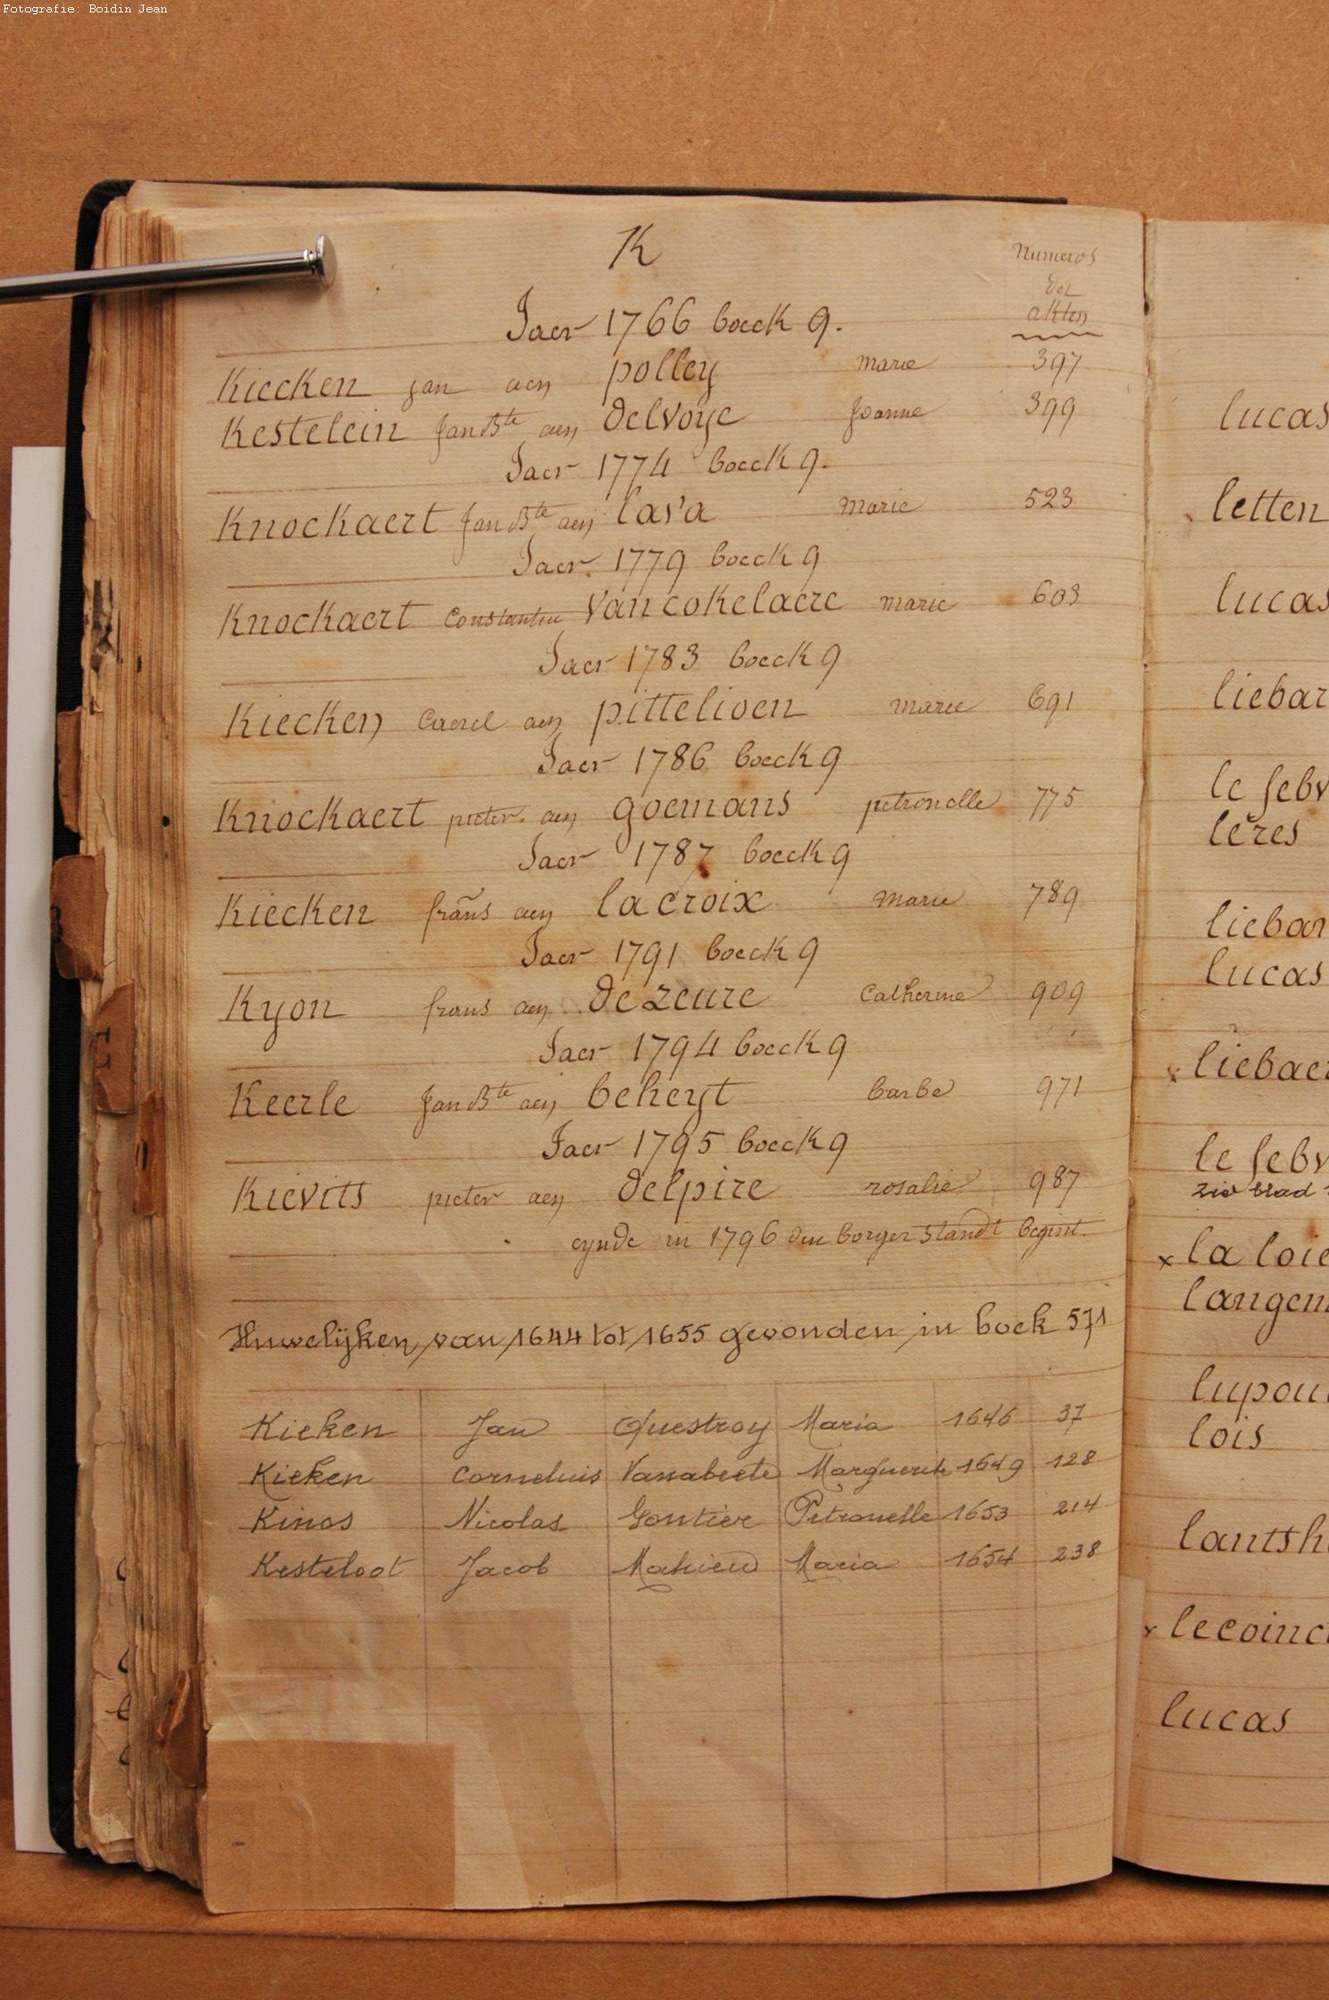 Fotografie: Boidin Jean
K
Numeros
der
akten
Jaer 1766 boeck 9.
Kiecken jan aen polley marie 397
Kestelein Jan Bte aen delvoye Joanne 399
Jaer 1774 boeck 9.
Knockaert Jan Bte aen lava Marie 523
Jaer 1779 boeck 9
Knockaert Constantin Vancokelaere marie 603
Jaer 1783 boeck 9
Kiecken Carel aen pittelioen marie 691
Jaer 1786 boeck 9
Knockaert pieter aen goemans petronelle 775
Jaer 1787 boeck 9
Kiecken frans aen lacroix Marie 789
Jaer 1791 boeck 9
Kyon frans aen dezeure Catherine 909
Jaer 1794 boeck 9
Keerle Jan Bte aen beheyt barbe 971
Jaer 1795 boeck 9
Kievits pieter aen delpire rosalie 987
eynde in 1796 den borgerstandt begint.
Huwelijken van 1644 tot 1655 gevonden in boek 571
Kieken Jan Questroy Maria 1646 37
Kieken Cornelius Vanabeele Marguerite 1649 128
Kinos Nicolas Gontier Petronelle 1653 214
Kesteloot Jacob Mahieu Maria 1654 238
lucas
letten
lucas
liebar
le febv
leres
liebar
lucas
x liebaer
le febv
zie blad
x la loie
langem
lupou
lois
lantsh
x lecoinc
lucas